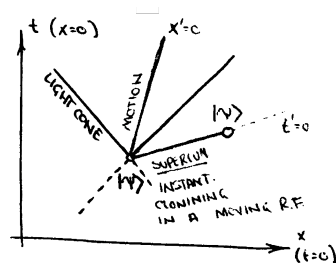 t (x=0)
x'=0
LIGHT CONE
MOTION
|ψ⟩
t'=0
SUPERLUM
|ψ⟩
INSTANT.
CLONINING
IN A MOVING R.F.
x
(t=0)